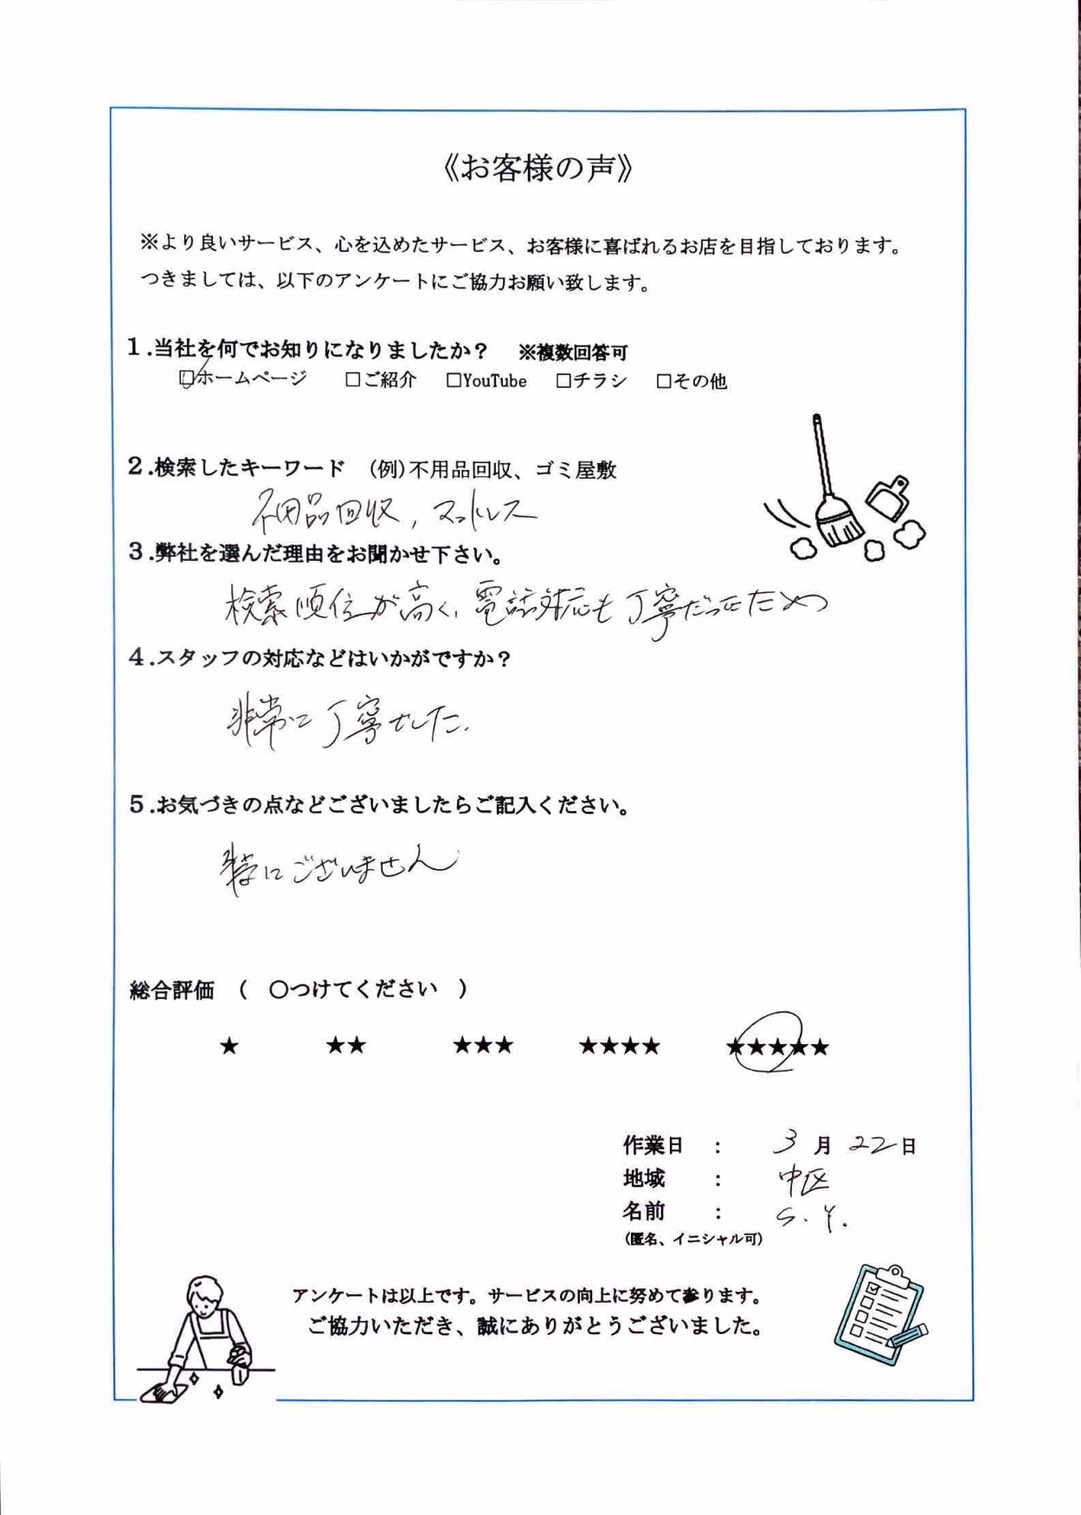 《お客様の声》
※より良いサービス、心を込めたサービス、お客様に喜ばれるお店を目指しております。
つきましては、以下のアンケートにご協力お願い致します。
1.当社を何でお知りになりましたか? ※複数回答可
☑ホームページ □ご紹介 □YouTube □チラシ □その他
2.検索したキーワード (例)不用品回収、ゴミ屋敷
不用品回収, マットレス
3.弊社を選んだ理由をお聞かせ下さい。
検索順位が高く、電話対応も丁寧だったため
4.スタッフの対応などはいかがですか?
非常に丁寧でした.
5.お気づきの点などございましたらご記入ください。
特にございません
総合評価 ( 〇つけてください )
★ ★★ ★★★ ★★★★ ★★★★★
作業日 : 3月22日
地域 : 中区
名前 : S.Y.
(匿名、イニシャル可)
アンケートは以上です。サービスの向上に努めて参ります。
ご協力いただき、誠にありがとうございました。